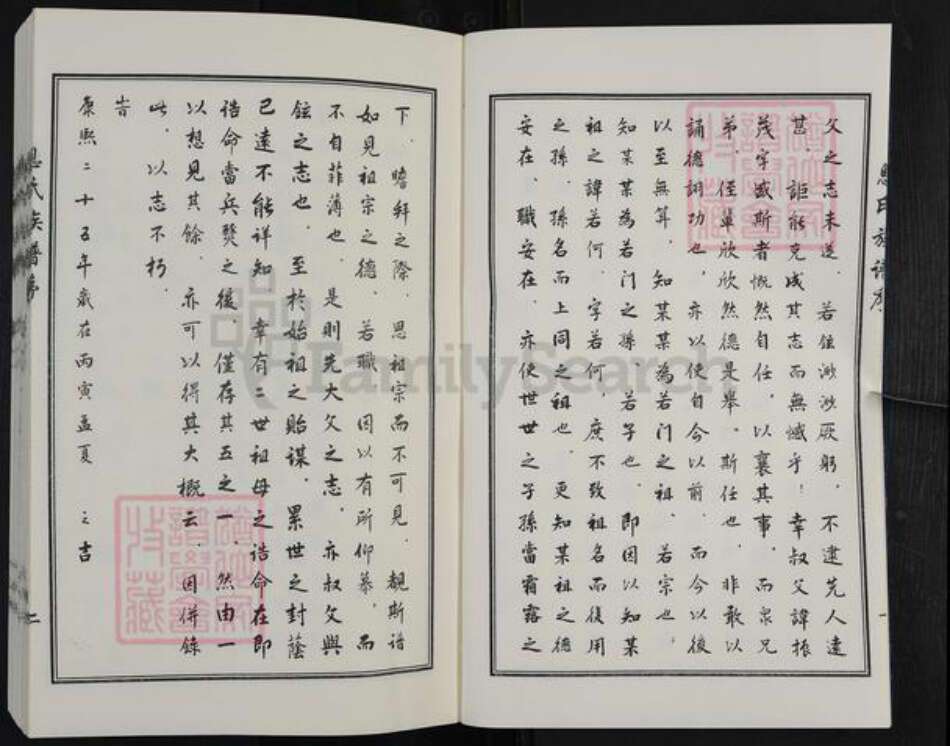 父之志未遂、若鉉渺渺厥躬、不逮先人遠
甚、詎能克成其志而無憾乎！幸叔父諱振
茂字盛斯者慨然自任、以襄其事、而衆兄
弟、侄輩欣欣然德是舉、斯任也、非敢以
誦德詡功也、亦以使自今以前、而今以後
以至無算、知某某為若門之祖、若宗也、
知某某為若門之孫、若子也、即因以知某
祖之諱若何、字若何、庶不致祖名而後用
之孫、孫名而上同之祖也、更知某祖之德
安在、職安在、亦使世世之子孫當霜露之
下、瞻拜之際、思祖宗而不可見、覩斯譜
如見祖宗之德、若職、因以有所仰慕、而
不自菲薄也、是則先大父之志、亦叔父與
鉉之志也、至於始祖之貽謀、累世之封蔭
已遠不能詳知、幸有二世祖母之誥命在即
誥命當兵燹之後、僅存其五之一、然由一
以想見其餘、亦可以得其大概云、因併錄
此、以志不朽、
告
康熙二十五年歲在丙寅孟夏 之吉
氏族譜序
二
氏族譜序
一
FamilySearch